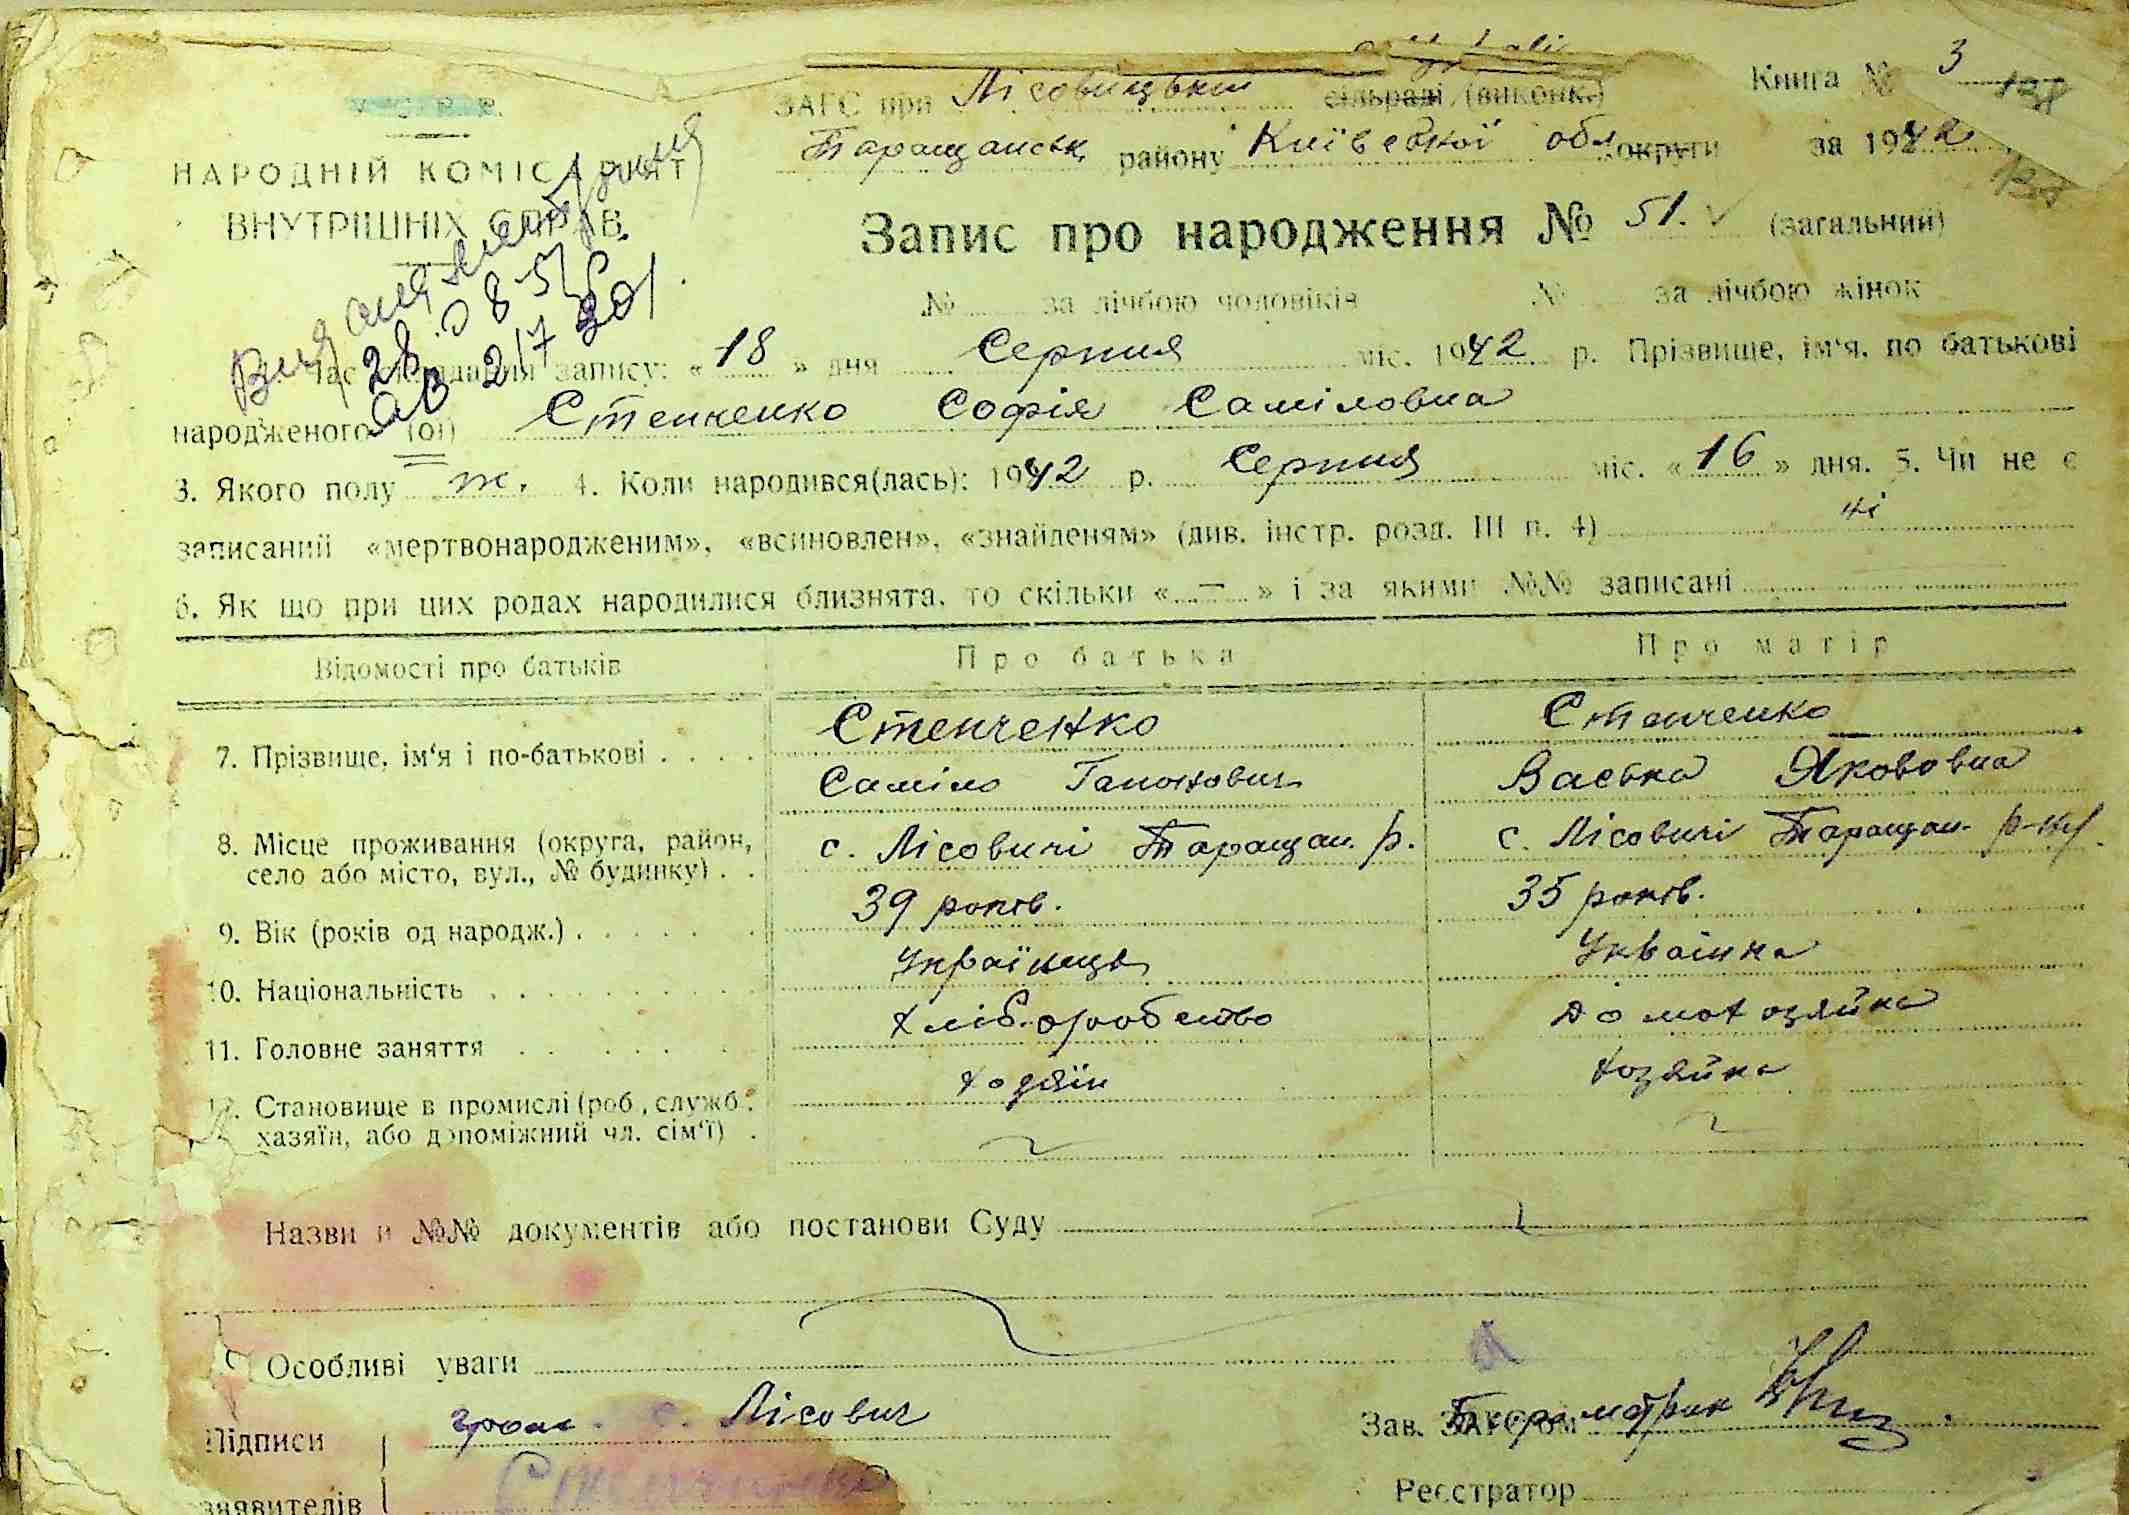 ЗАГС при Лісовицькій сільраді (виконк.) Книга № 3
138
НАРОДНІЙ КОМІСАРІЯТ
ВНУТРІШНІХ СПРАВ
Таращанськ району Київської обл округи за 1942
Запис про народження № 51. (загальний)
№ за лічбою чоловіків № за лічбою жінок
28.08.51
217 301
Час складання запису: « 18 » дня Серпня міс. 1942 р. Прізвище, ім'я, по батькові
народженого (ої) Степченко Софія Саміловна
3. Якого полу ж. 4. Коли народився(лась): 1942 р. Серпня міс. « 16 » дня. 5. Чи не є
записаний «мертвонародженим», «всиновлен», «знайденям» (див. інстр. розд. III п. 4) ні
6. Як що при цих родах народилися близнята, то скільки « — » і за якими №№ записані
Відомості про батьків Про батька Про матір
7. Прізвище, ім'я і по-батькові Степченко Степченко
Саміло Гапонович Васька Якововна
8. Місце проживання (округа, район, село або місто, вул., № будинку) с. Лісовичі Таращан. р. с. Лісовичі Таращан. р-ну.
9. Вік (років од народж.) 39 років. 35 років.
10. Національність Українець Українка
11. Головне заняття хліборобство домохозяйка
12. Становище в промислі (роб., служб. хазяїн, або допоміжний чл. сім'ї) хозяїн хозяйка
Назви и №№ документів або постанови Суду
Особливі уваги
Підписи гром. с. Лісович Зав. ЗАГСом Бюро метрик
заявителів Степченко Реєстратор